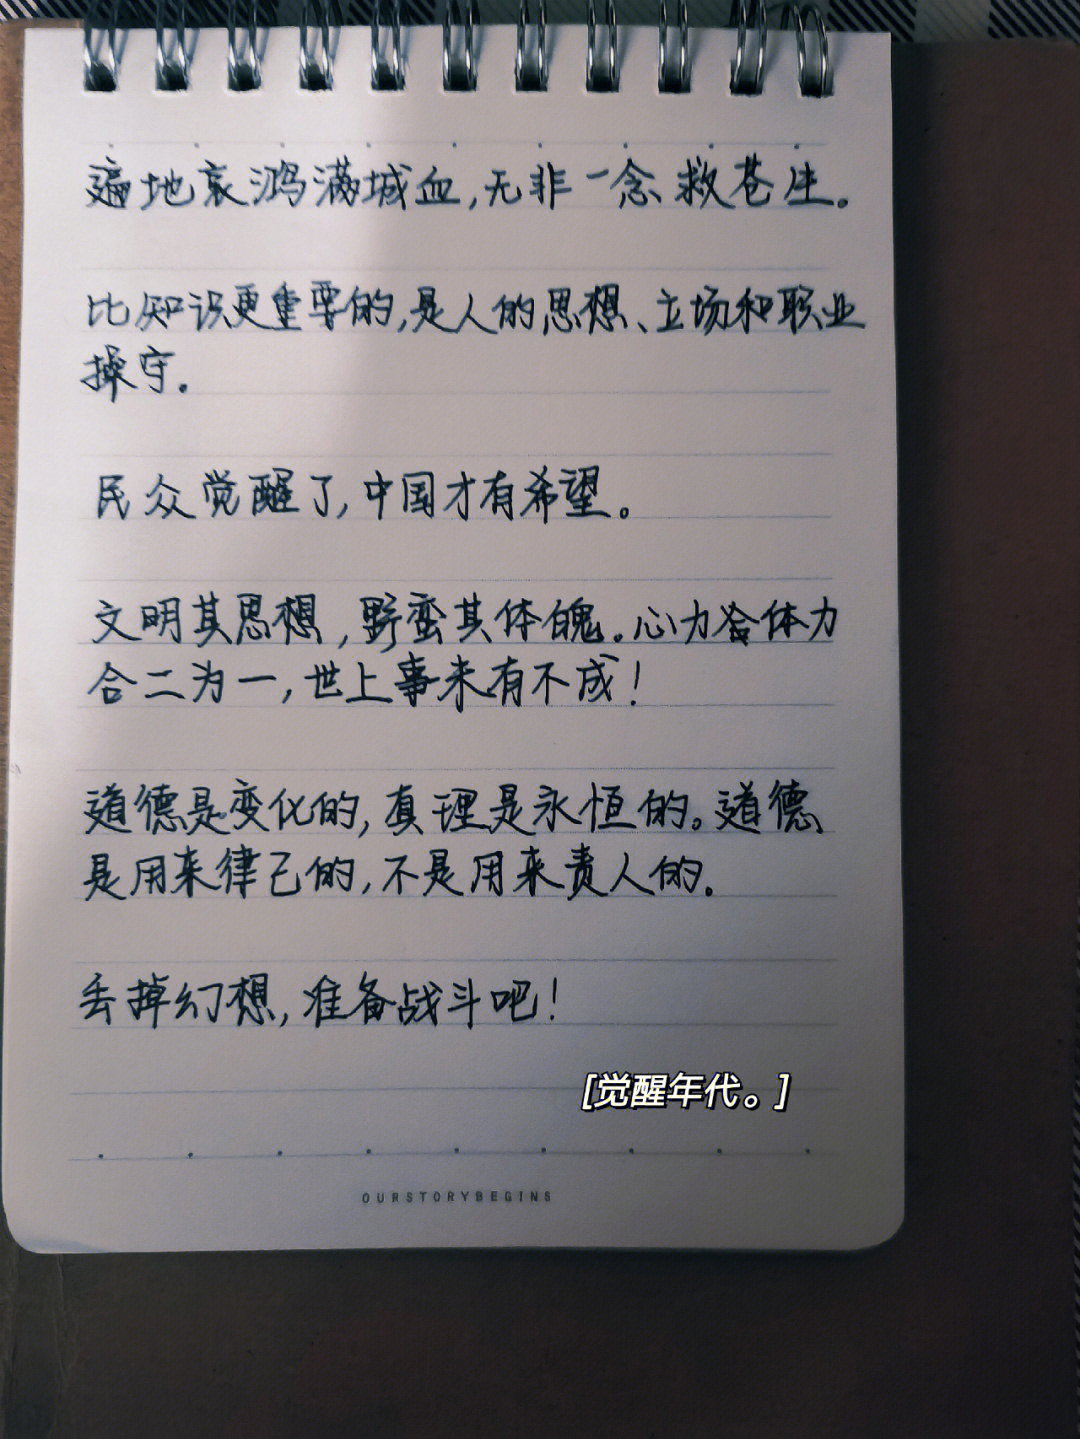 遍地哀鸿满城血,无非一念救苍生。
比知识更重要的,是人的思想、立场和职业
操守。
民众觉醒了,中国才有希望。
文明其思想,野蛮其体魄。心力合体力
合二为一,世上事来有不成!
道德是变化的,真理是永恒的。道德
是用来律己的,不是用来责人的。
丢掉幻想,准备战斗吧!
[觉醒年代。]
OURSTORYBEGINS